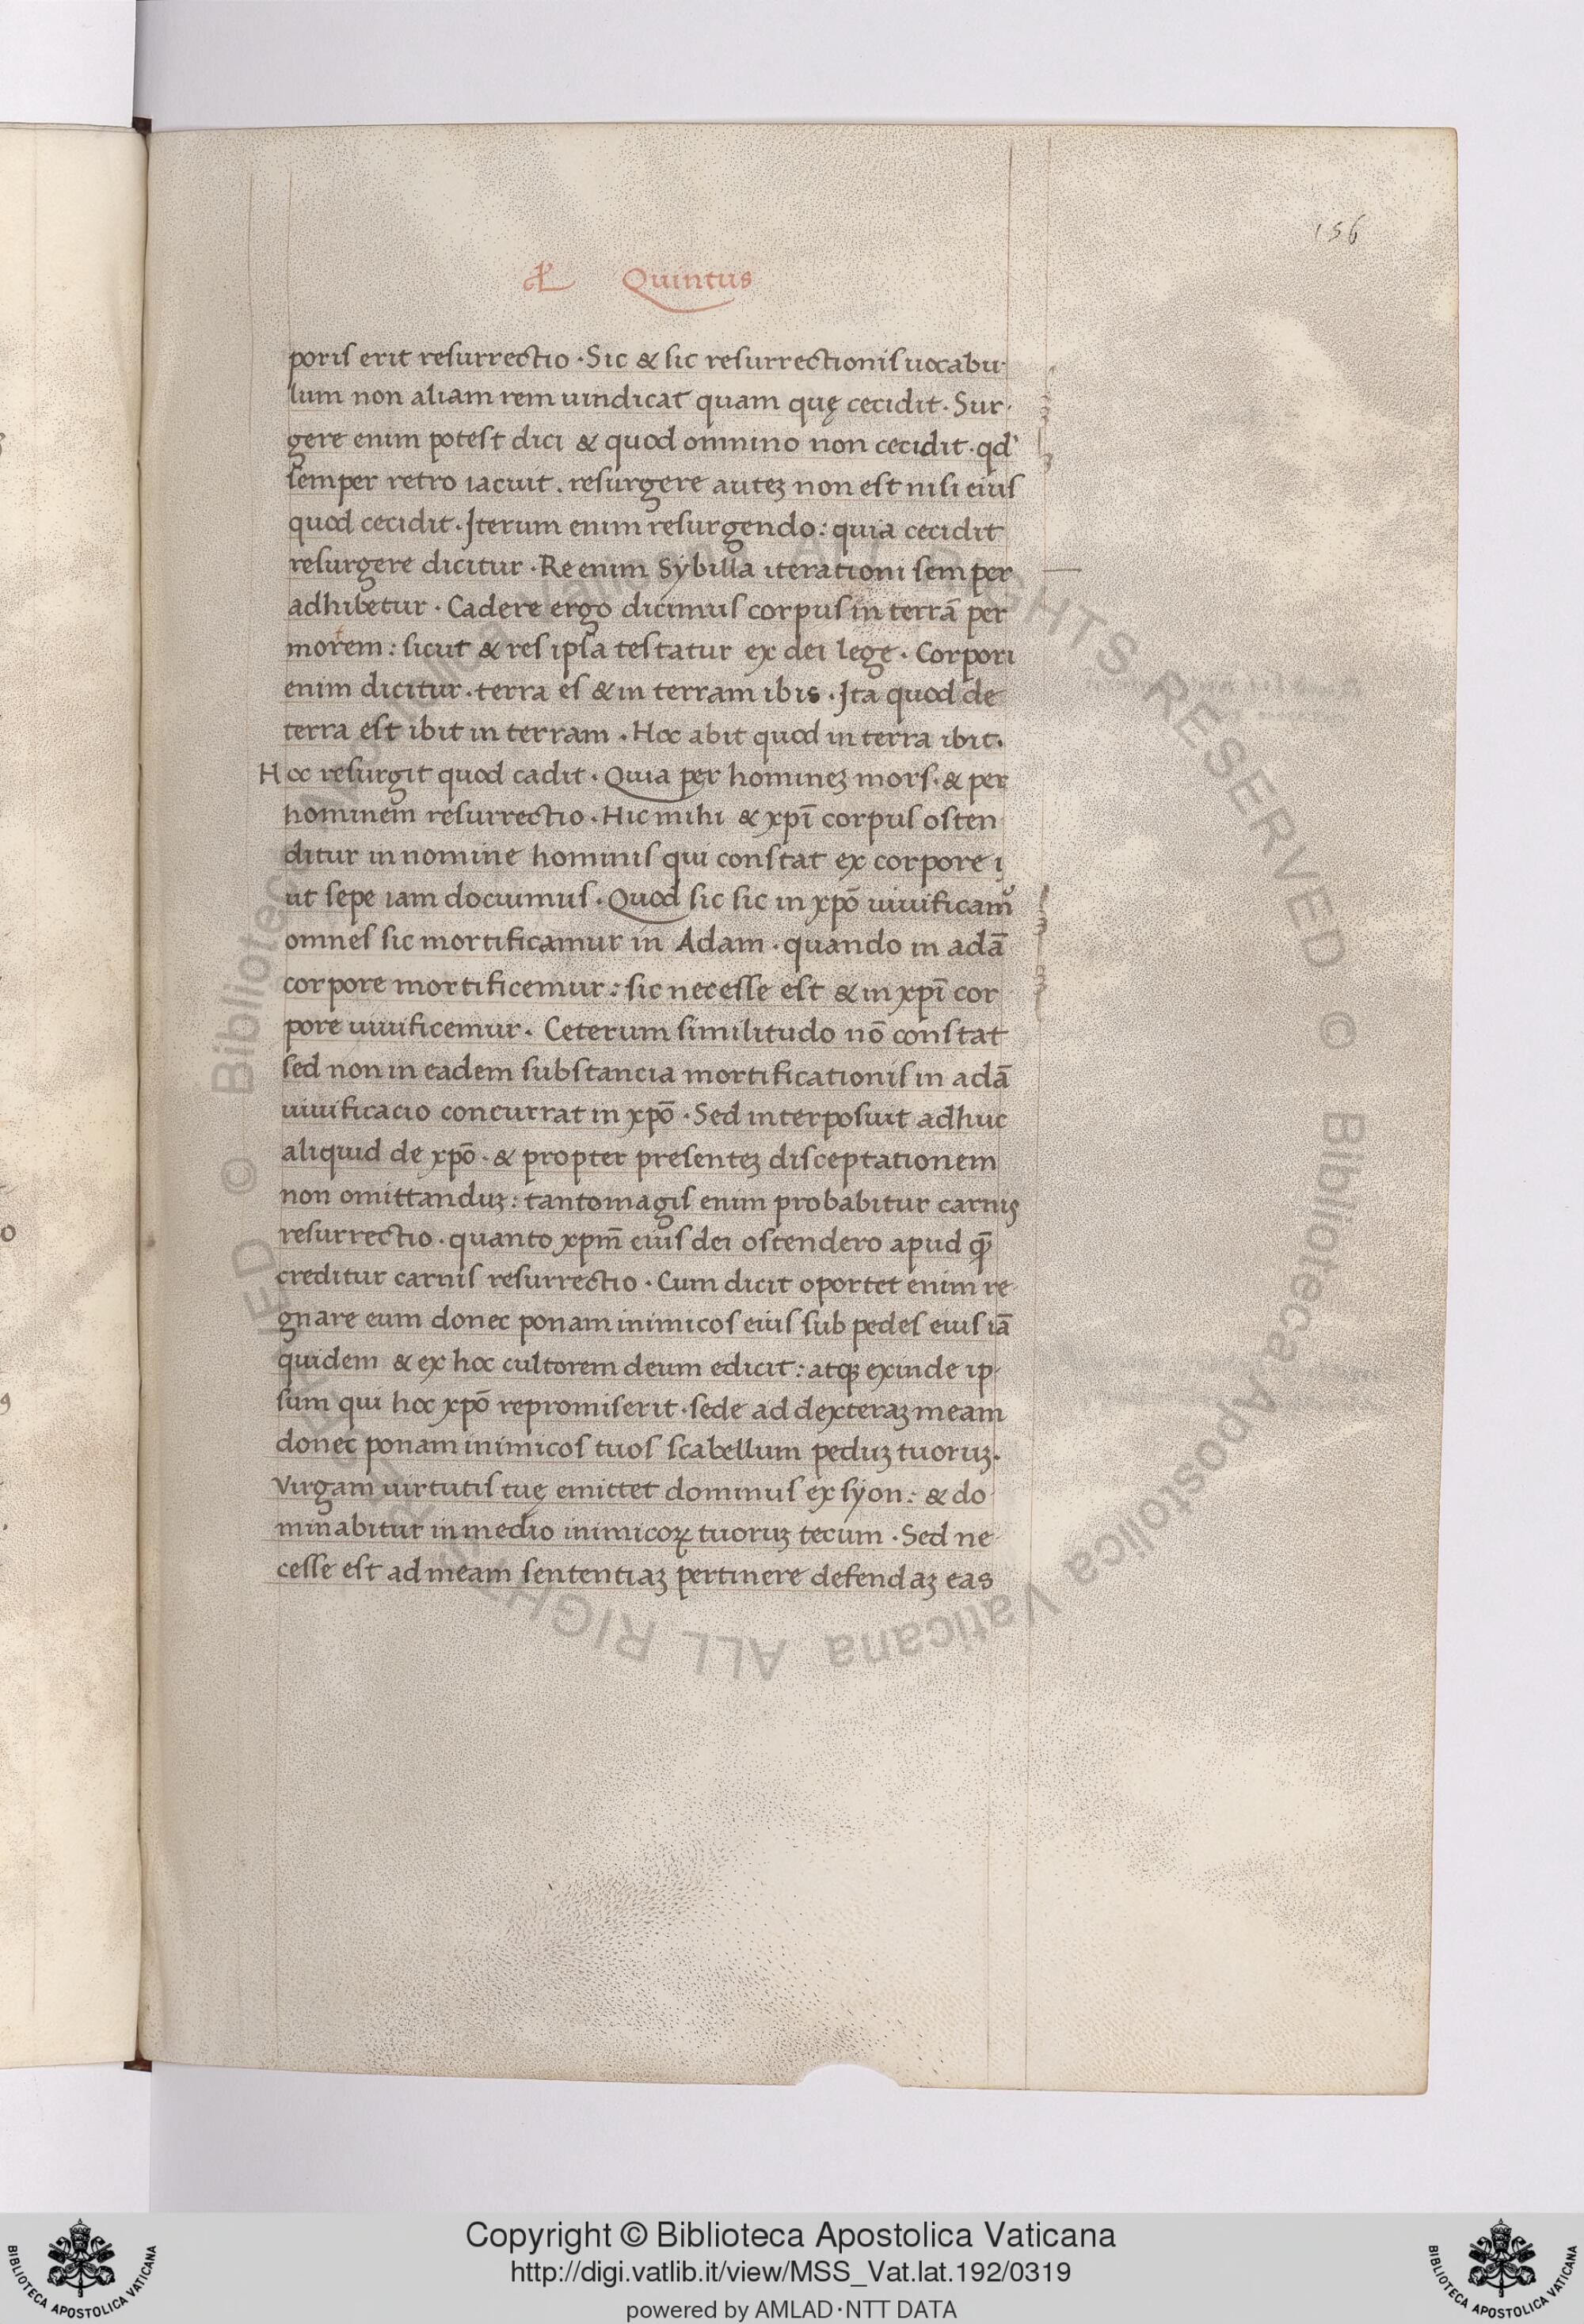 156
Quintus
poris erit resurrectio · Sic & sic resurrectionis uocabu·
lum non aliam rem uindicat quam quę cecidit · Sur·
gere enim potest dici & quod omnino non cecidit · qd'
semper retro iacuit . resurgere auteꝫ non est nisi eius
quod cecidit · Iterum enim resurgendo : quia cecidit
resurgere dicitur · Re enim Sybilla iterationi semper
adhibetur · Cadere ergo dicimus corpus in terrā per
morem : sicut & res ipsa testatur ex dei lege · Corpori
enim dicitur · terra es & in terram ibis · Ita quod de
terra est ibit in terram · Hoc abit quod in terra ibit·
Hoc resurgit quod cadit · Quia per homineꝫ mors · & per
hominem resurrectio · Hic mihi & xpī corpus osten
ditur in nomine hominis qui constat ex corpore
ut sepe iam docuimus · Quod sic sic in xpō uiuificam᷒
omnes sic mortificamur in Adam · quando in adā
corpore mortificemur : sic necesse est & in xpī cor
pore uiuificemur · Ceterum similitudo nō constat
sed non in eadem substancia mortificationis in adā
uiuificacio concurrat in xpō · Sed interposuit adhuc
aliquid de xpō · & propter presenteꝫ disceptationem
non omittanduꝫ : tantomagis enim probabitur carnis
resurrectio · quanto xpm̄ eius dei ostendero apud quē
creditur carnis resurrectio · Cum dicit oportet enim re·
gnare eum donec ponam inimicos eius sub pedes eius iā
quidem & ex hoc cultorem deum edicit : atqꝫ exinde ip·
sum qui hoc xpō repromiserit · sede ad dexteraꝫ meam
donec ponam inimicos tuos scabellum peduꝫ tuoruꝫ·
Virgam uirtutis tuę emittet dominus ex syon : & do
minabitur in medio inimicoꝝ tuoruꝫ tecum · Sed ne
cesse est ad meam sententiaꝫ pertinere defendaꝫ eas
© Biblioteca Apostolica Vaticana ALL RIGHTS RESERVED © Biblioteca Apostolica Vaticana ALL RIGHTS RESERVED
Copyright © Biblioteca Apostolica Vaticana
http://digi.vatlib.it/view/MSS_Vat.lat.192/0319
powered by AMLAD·NTT DATA
BIBLIOTECA APOSTOLICA VATICANA
BIBLIOTECA APOSTOLICA VATICANA